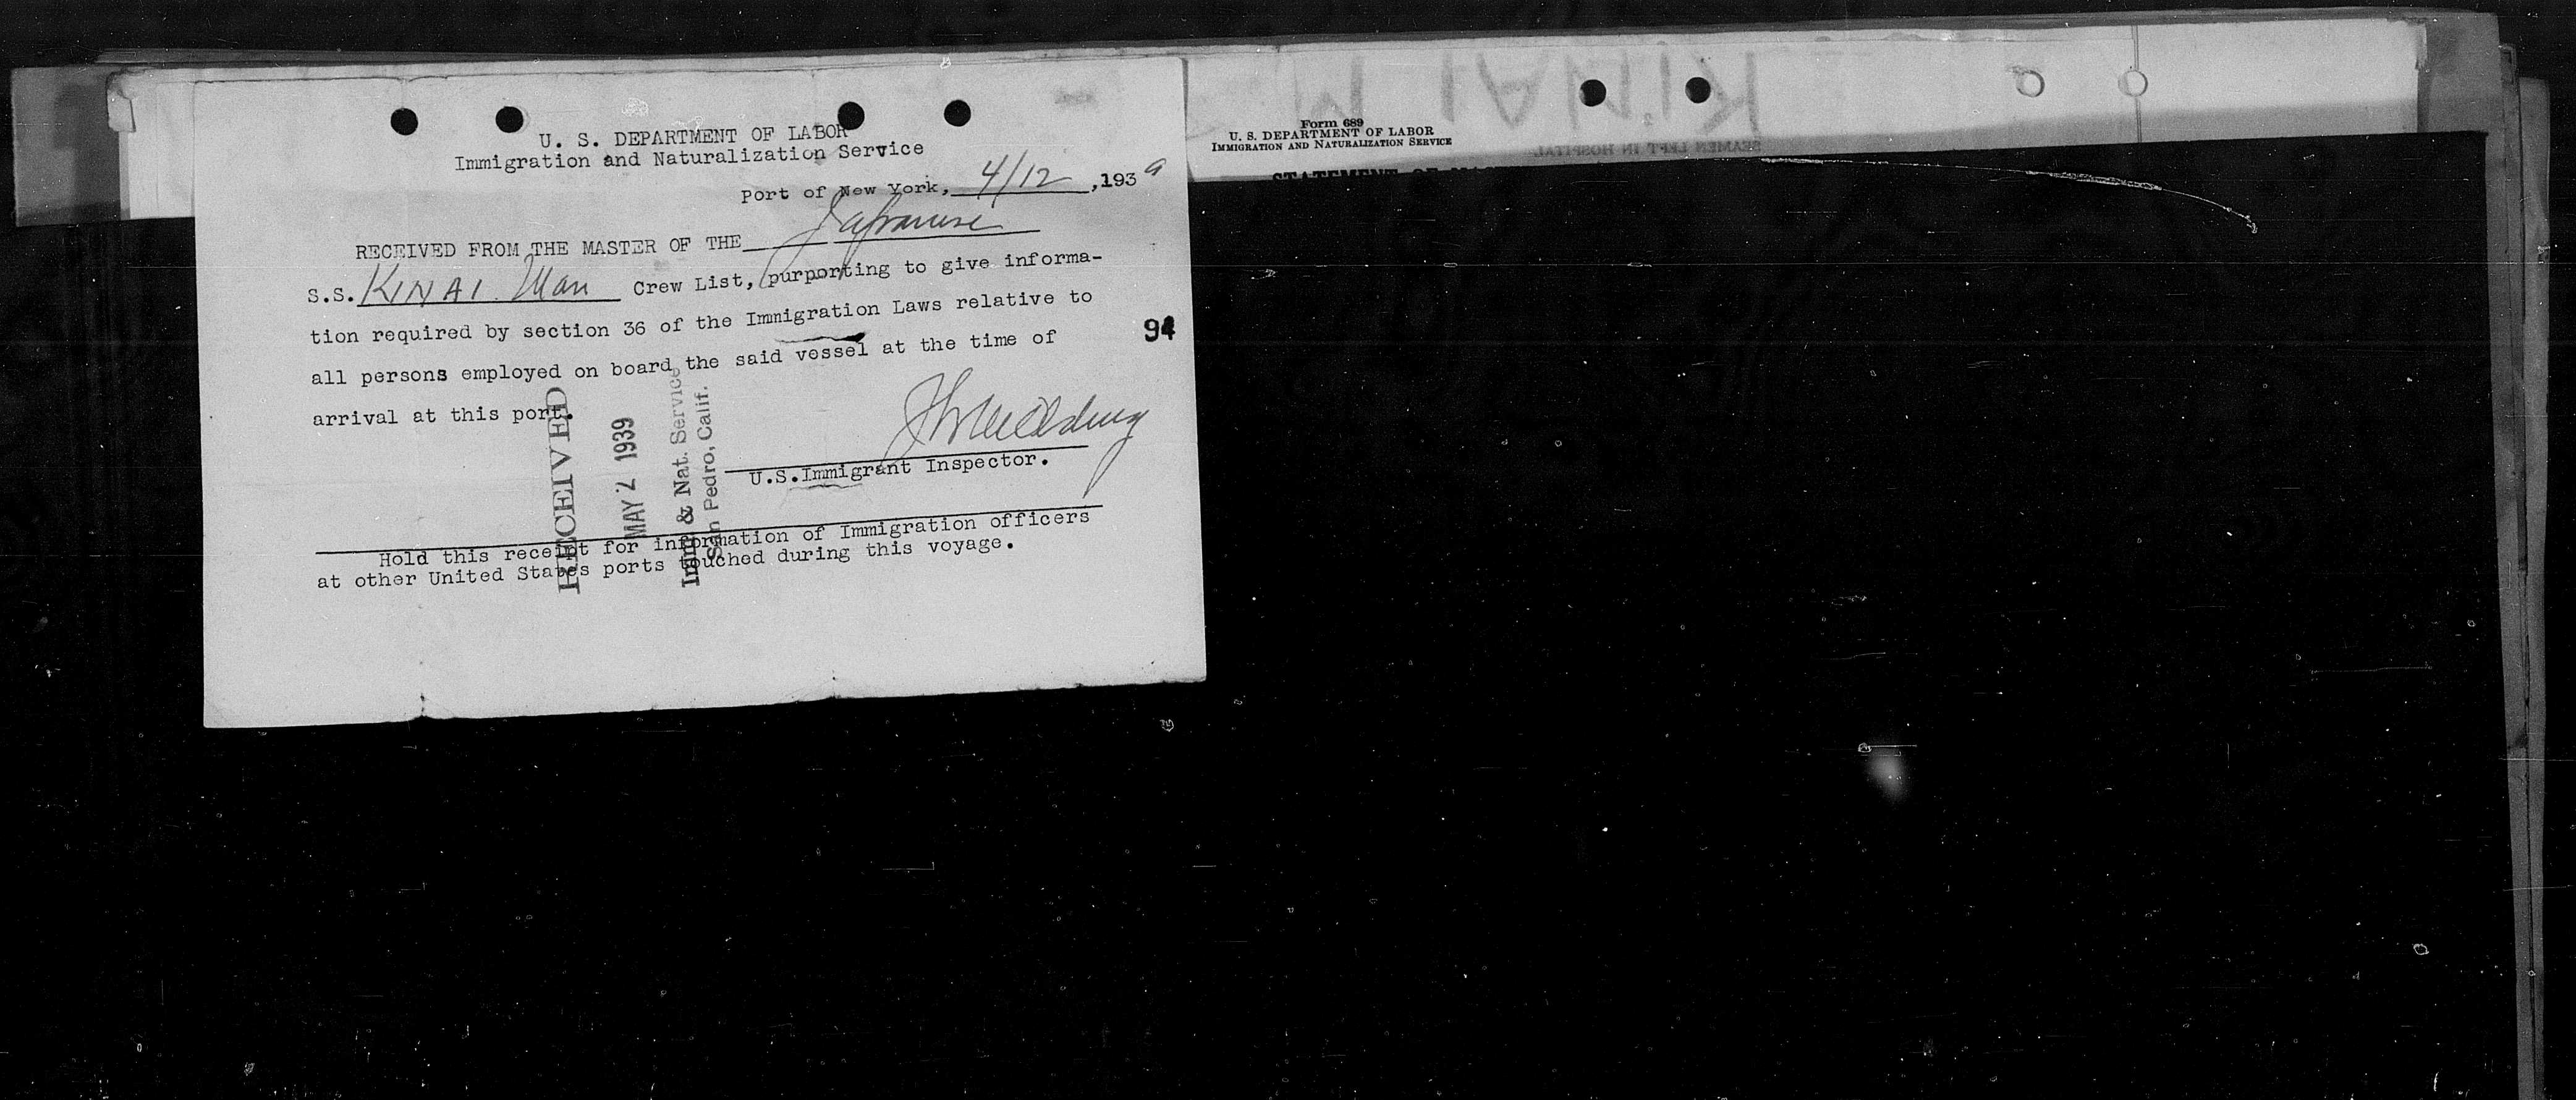 U. S. DEPARTMENT OF LABOR
Immigration and Naturalization Service
Port of New York, 4/12, 1939
RECEIVED FROM THE MASTER OF THE Japanese
S.S. KINAI Maru Crew List, purporting to give informa-
tion required by section 36 of the Immigration Laws relative to
all persons employed on board the said vessel at the time of
arrival at this port.
94
U.S. Immigrant Inspector.
Hold this receipt for information of Immigration officers
at other United States ports touched during this voyage.
RECEIVED
MAY 2 1939
Imm. & Nat. Service
San Pedro, Calif.
Form 689
U. S. DEPARTMENT OF LABOR
IMMIGRATION AND NATURALIZATION SERVICE
STATEMENT OF
KINAI M
SEAMEN LEFT IN HOSPITAL